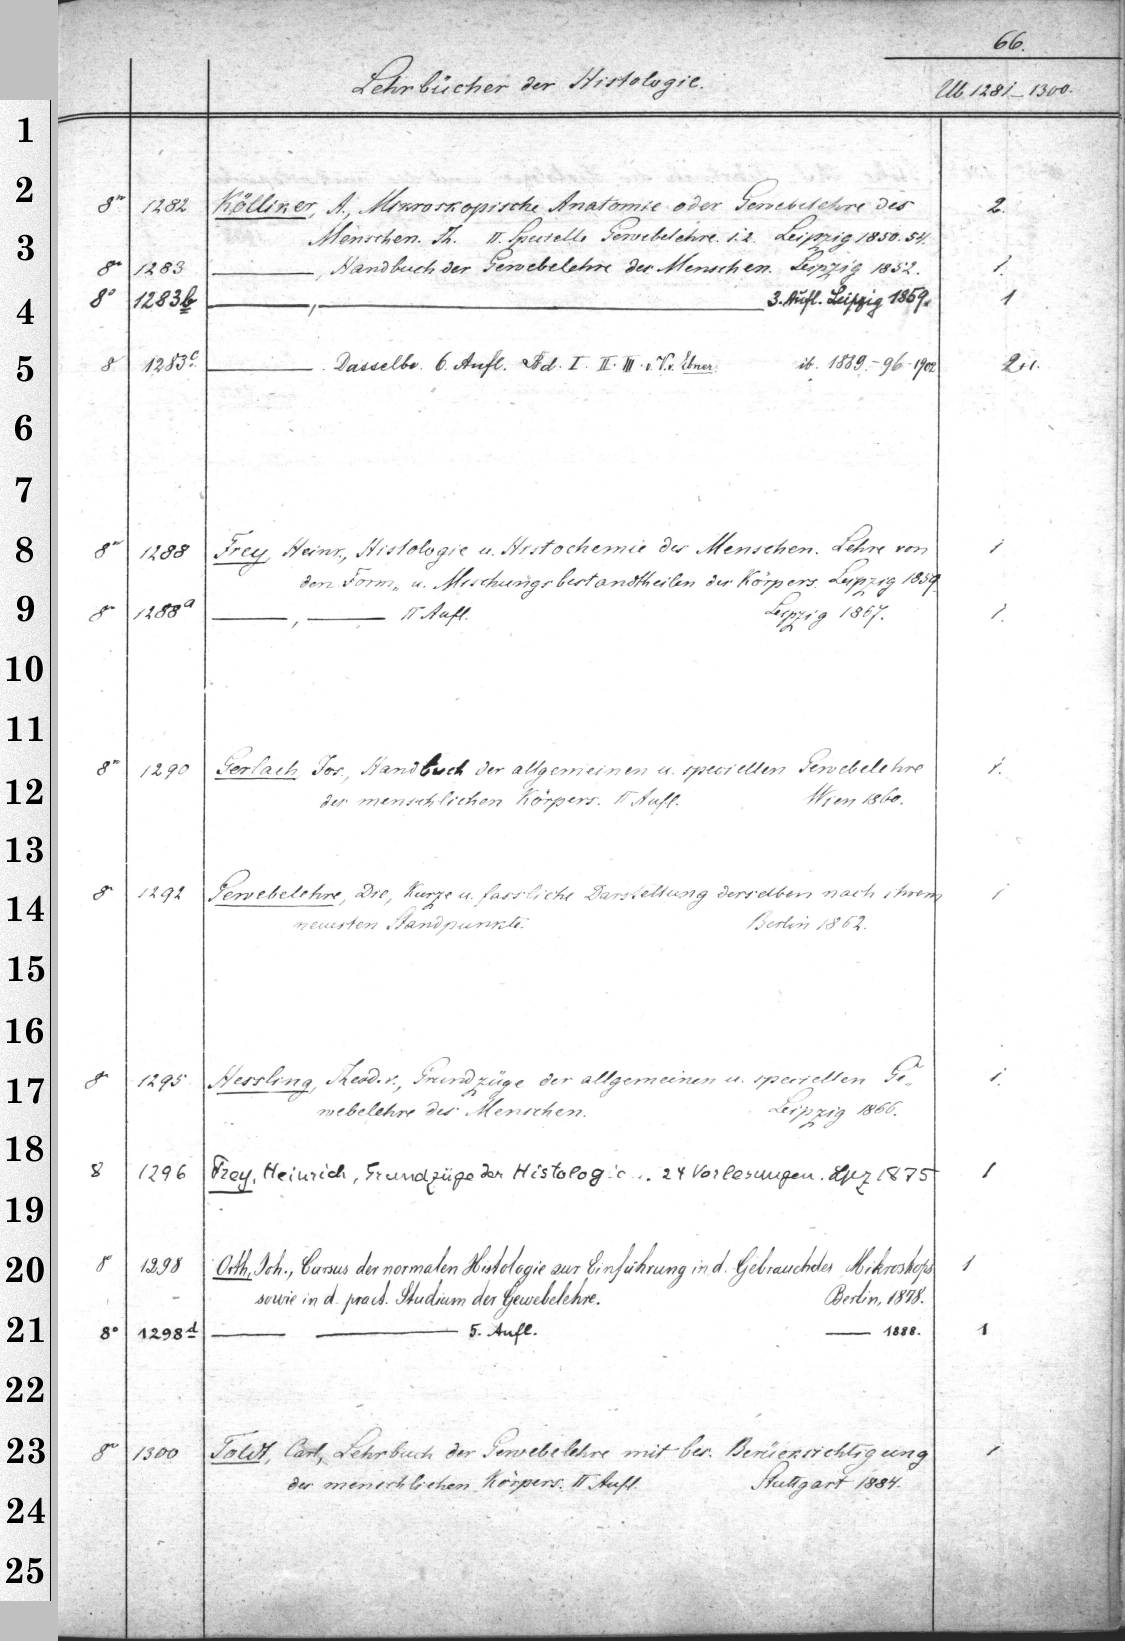 66.
Lehrbücher der Histologie. Ub 1281–1300.
1
2
8° 1282 Kölliker, A., Mikroskopische Anatomie oder Gewebelehre des 2.
Menschen. Th. II. Specielle Gewebelehre. 1.2. Leipzig 1850.54.
3
8° 1283 ———, Handbuch der Gewebelehre des Menschen. Leipzig 1852. 1.
4
8° 1283b ———, ——— 3. Aufl. Leipzig 1859. 1
5
8 1283c. ——— Dasselbe. 6. Aufl. Bd. I. II. III. v. V. v. Ebner. ib. 1889–96–1902 2+1.
6
7
8
8° 1288 Frey, Heinr., Histologie u. Histochemie des Menschen. Lehre von 1
den Form- u. Mischungsbestandtheilen des Körpers. Leipzig 1859.
9
8° 1288a ———, ——— II Aufl. Leipzig 1867. 1.
10
11
8° 1290 Gerlach, Jos., Handbuch der allgemeinen u. speciellen Gewebelehre 1.
12
des menschlichen Körpers. II Aufl. Wien 1860.
13
14
8° 1292 Gewebelehre, Die, Kurze u. fassliche Darstellung derselben nach ihrem 1
neuesten Standpunkte. Berlin 1862.
15
16
17
8° 1295 Hessling, Theod. v., Grundzüge der allgemeinen u. speciellen Ge- 1.
webelehre des Menschen. Leipzig 1866.
18
8 1296 Frey, Heinrich, Grundzüge der Histologie. 24 Vorlesungen. Lpz 1875 1
19
20
8° 1298 Orth, Joh., Cursus der normalen Histologie zur Einführung in d. Gebrauch des Mikroskops 1
sowie in d. pract. Studium der Gewebelehre. Berlin, 1878.
21
8° 1298d ——— ——— 5. Aufl. ——— 1888. 1
22
23
8° 1300 Toldt, Carl, Lehrbuch der Gewebelehre mit bes. Berücksichtigung 1
des menschlichen Körpers. II Aufl. Stuttgart 1884.
24
25